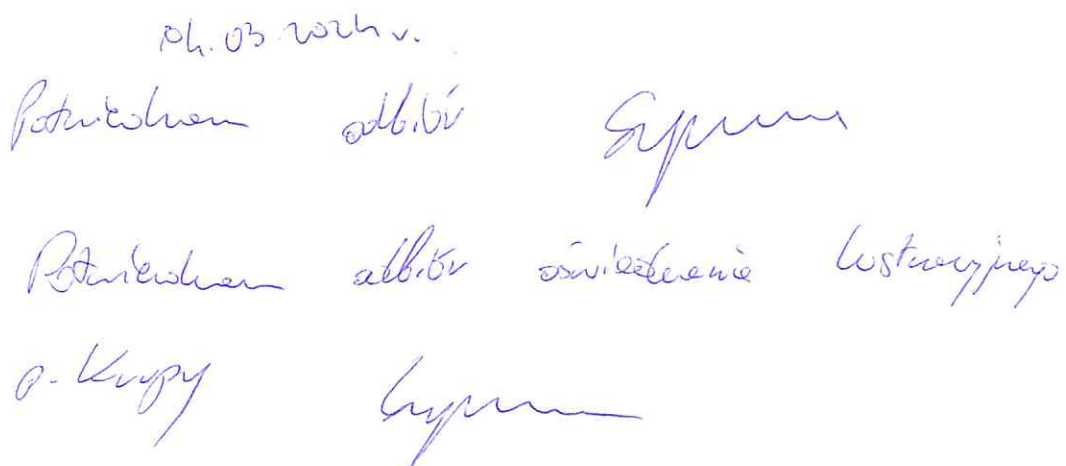 04.03.2024 r.
Potwierdzam odbiór
Potwierdzam odbiór oświadczenia lustracyjnego
p. Krupy